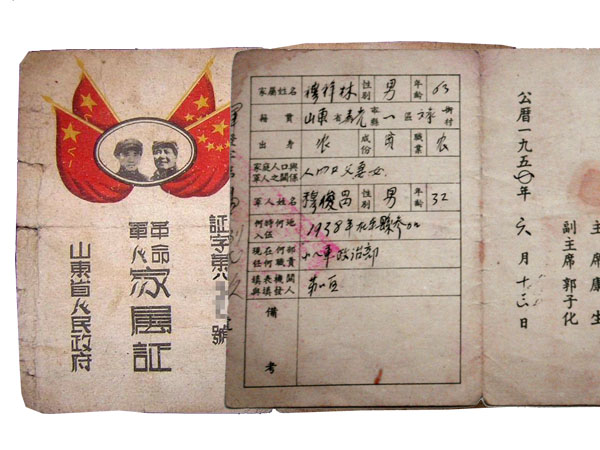 証字第
號
革命
軍人
家屬証
山東省人民政府
家屬姓名 穆祥林 性別 男 年齡 63
籍貫 山東省壽光縣一區 村
出身 农 成份 職業 农
家庭人口與軍人之關係 人四口父妻女
軍人姓名 穆俊昌 性別 男 年齡 32
何時何地入伍 1938年在縣参加
現在何部任何職責 十八軍政治部
填表機關與填發人
備考
公曆一九五〇年六月十三日
主席康生
副主席郭子化